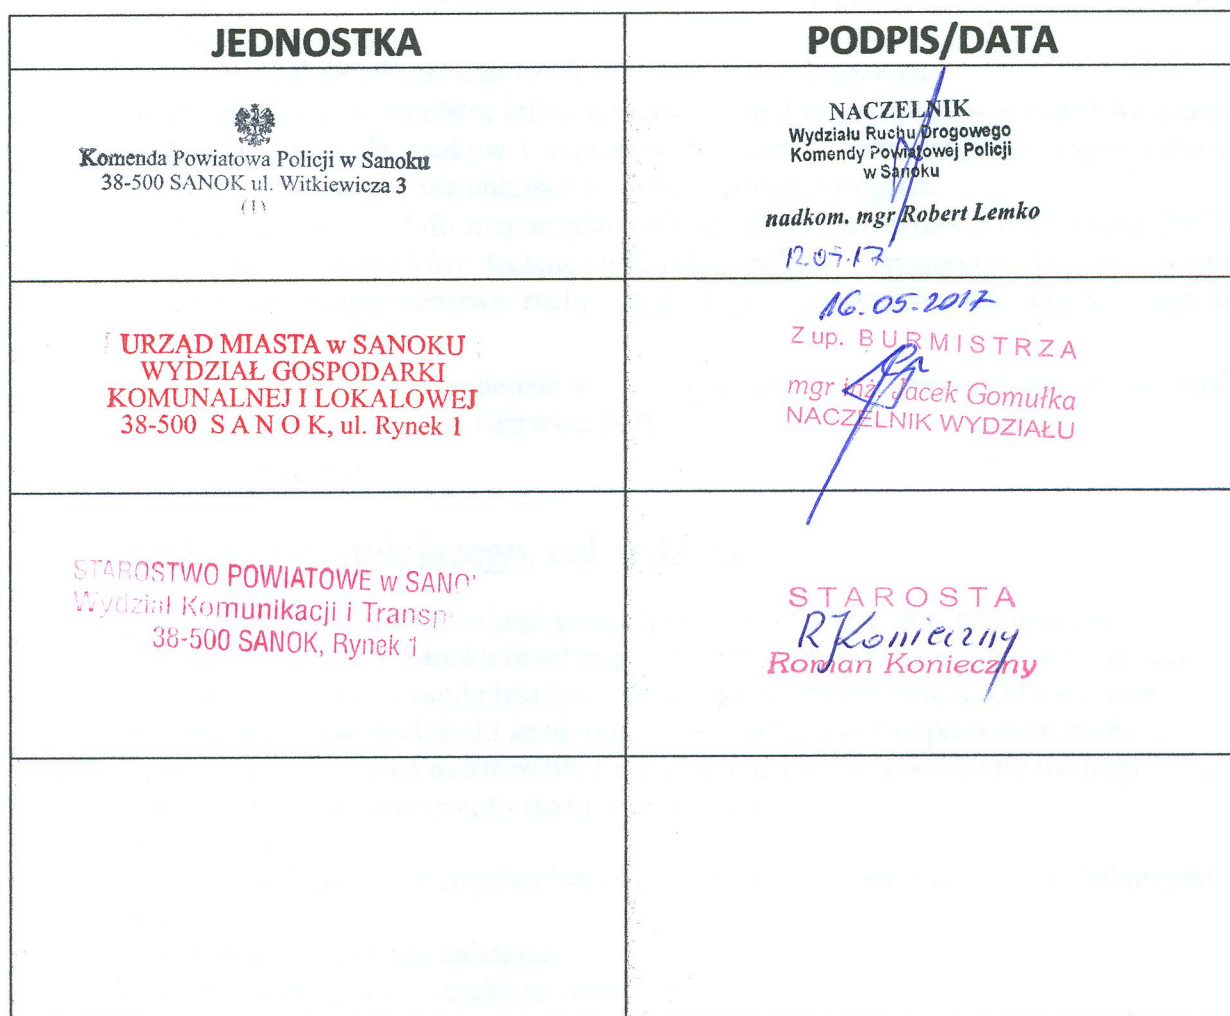 JEDNOSTKA
PODPIS/DATA
Komenda Powiatowa Policji w Sanoku
38-500 SANOK ul. Witkiewicza 3
(1)
NACZELNIK
Wydziału Ruchu Drogowego
Komendy Powiatowej Policji
w Sanoku
nadkom. mgr Robert Lemko
URZĄD MIASTA w SANOKU
WYDZIAŁ GOSPODARKI
KOMUNALNEJ I LOKALOWEJ
38-500 S A N O K, ul. Rynek 1
16.05.2017
Z up. BURMISTRZA
mgr inż. Jacek Gomułka
NACZELNIK WYDZIAŁU
STAROSTWO POWIATOWE w SANO
Wydział Komunikacji i Transp
38-500 SANOK, Rynek 1
STAROSTA
R Konieczny
Roman Konieczny